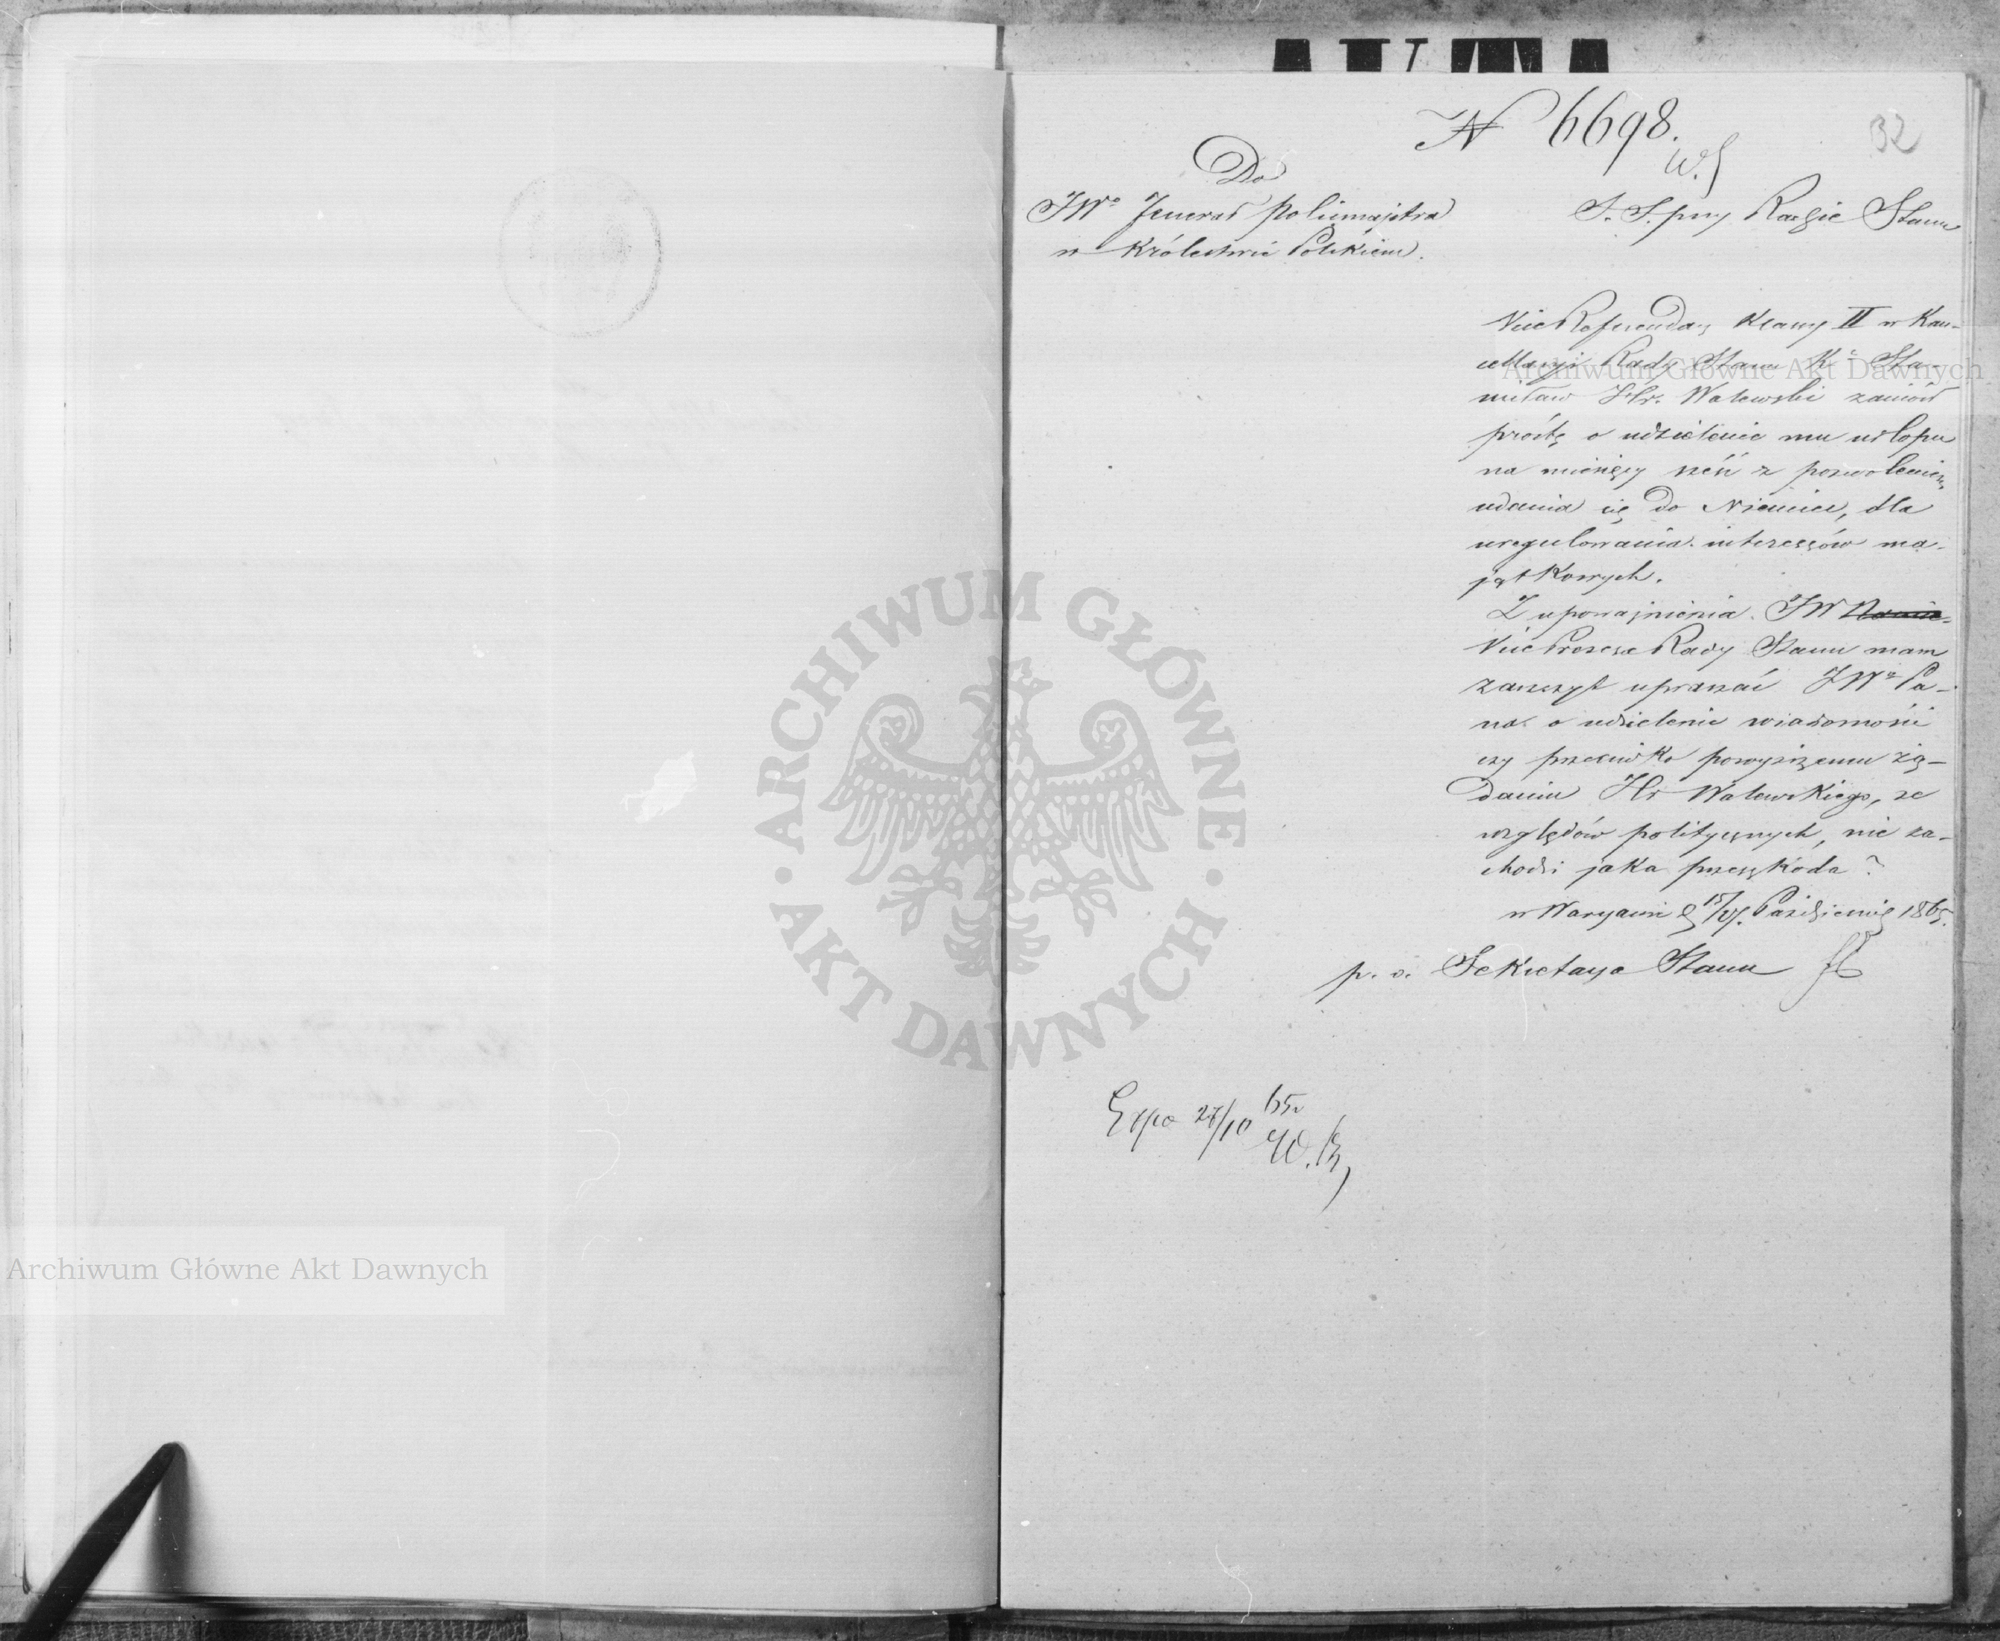 N 6698.
32
Do
JWo Jenerał Policmajstra
w Królestwie Polskiem.
S. S. przy Radzie Stanu
ViceReferendarz Klassy II w Kan-
cellaryi Rady Stanu Kr. Sta-
nisław Hr. Walewski zaniósł
prośbę o udzielenie mu urlopu
na miesięcy sześć z pozwoleniem
udania się do Niemiec, dla
uregulowania interessów ma-
jątkowych.
Z upoważnienia JW
Vice Prezesa Rady Stanu mam
zaszczyt upraszać JWo Pa-
na o udzielenie wiadomości
czy przeciwko powyższemu żą-
daniu Hr Walewskiego, ze
względów politycznych, nie za-
chodzi jaka przeszkoda?
w Warszawie d 15/27 Październik 1865.
p. o. Sekretarza Stanu
Expo 27/10 65r
W. B.
ARCHIWUM GŁÓWNE
AKT DAWNYCH
Archiwum Główne Akt Dawnych
Archiwum Główne Akt Dawnych